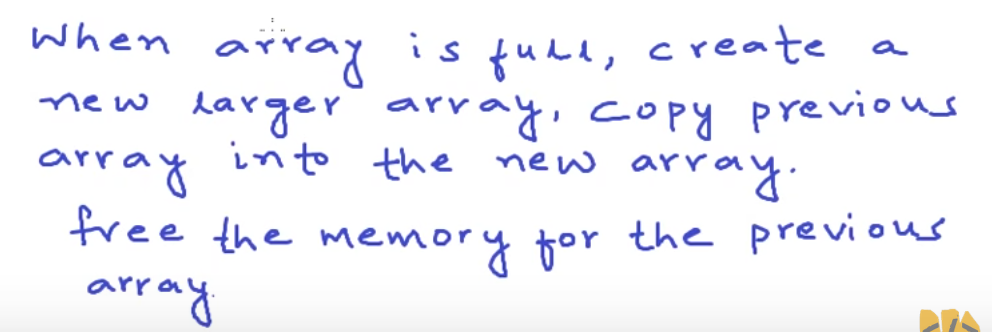 When array is full, create a
new larger array, copy previous
array into the new array.
free the memory for the previous
array.